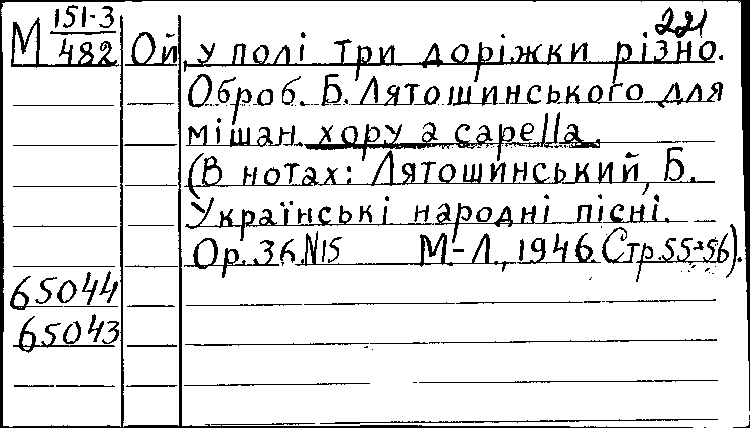 221
М 151-3/482 Ой, у полі три доріжки різно.
Оброб. Б. Лятошинського для
мішан. хору a capella.
(В нотах: Лятошинський, Б.
Українські народні пісні.
Op. 36. №15 М.-Л., 1946. Стр. 55-56).
65044
65043